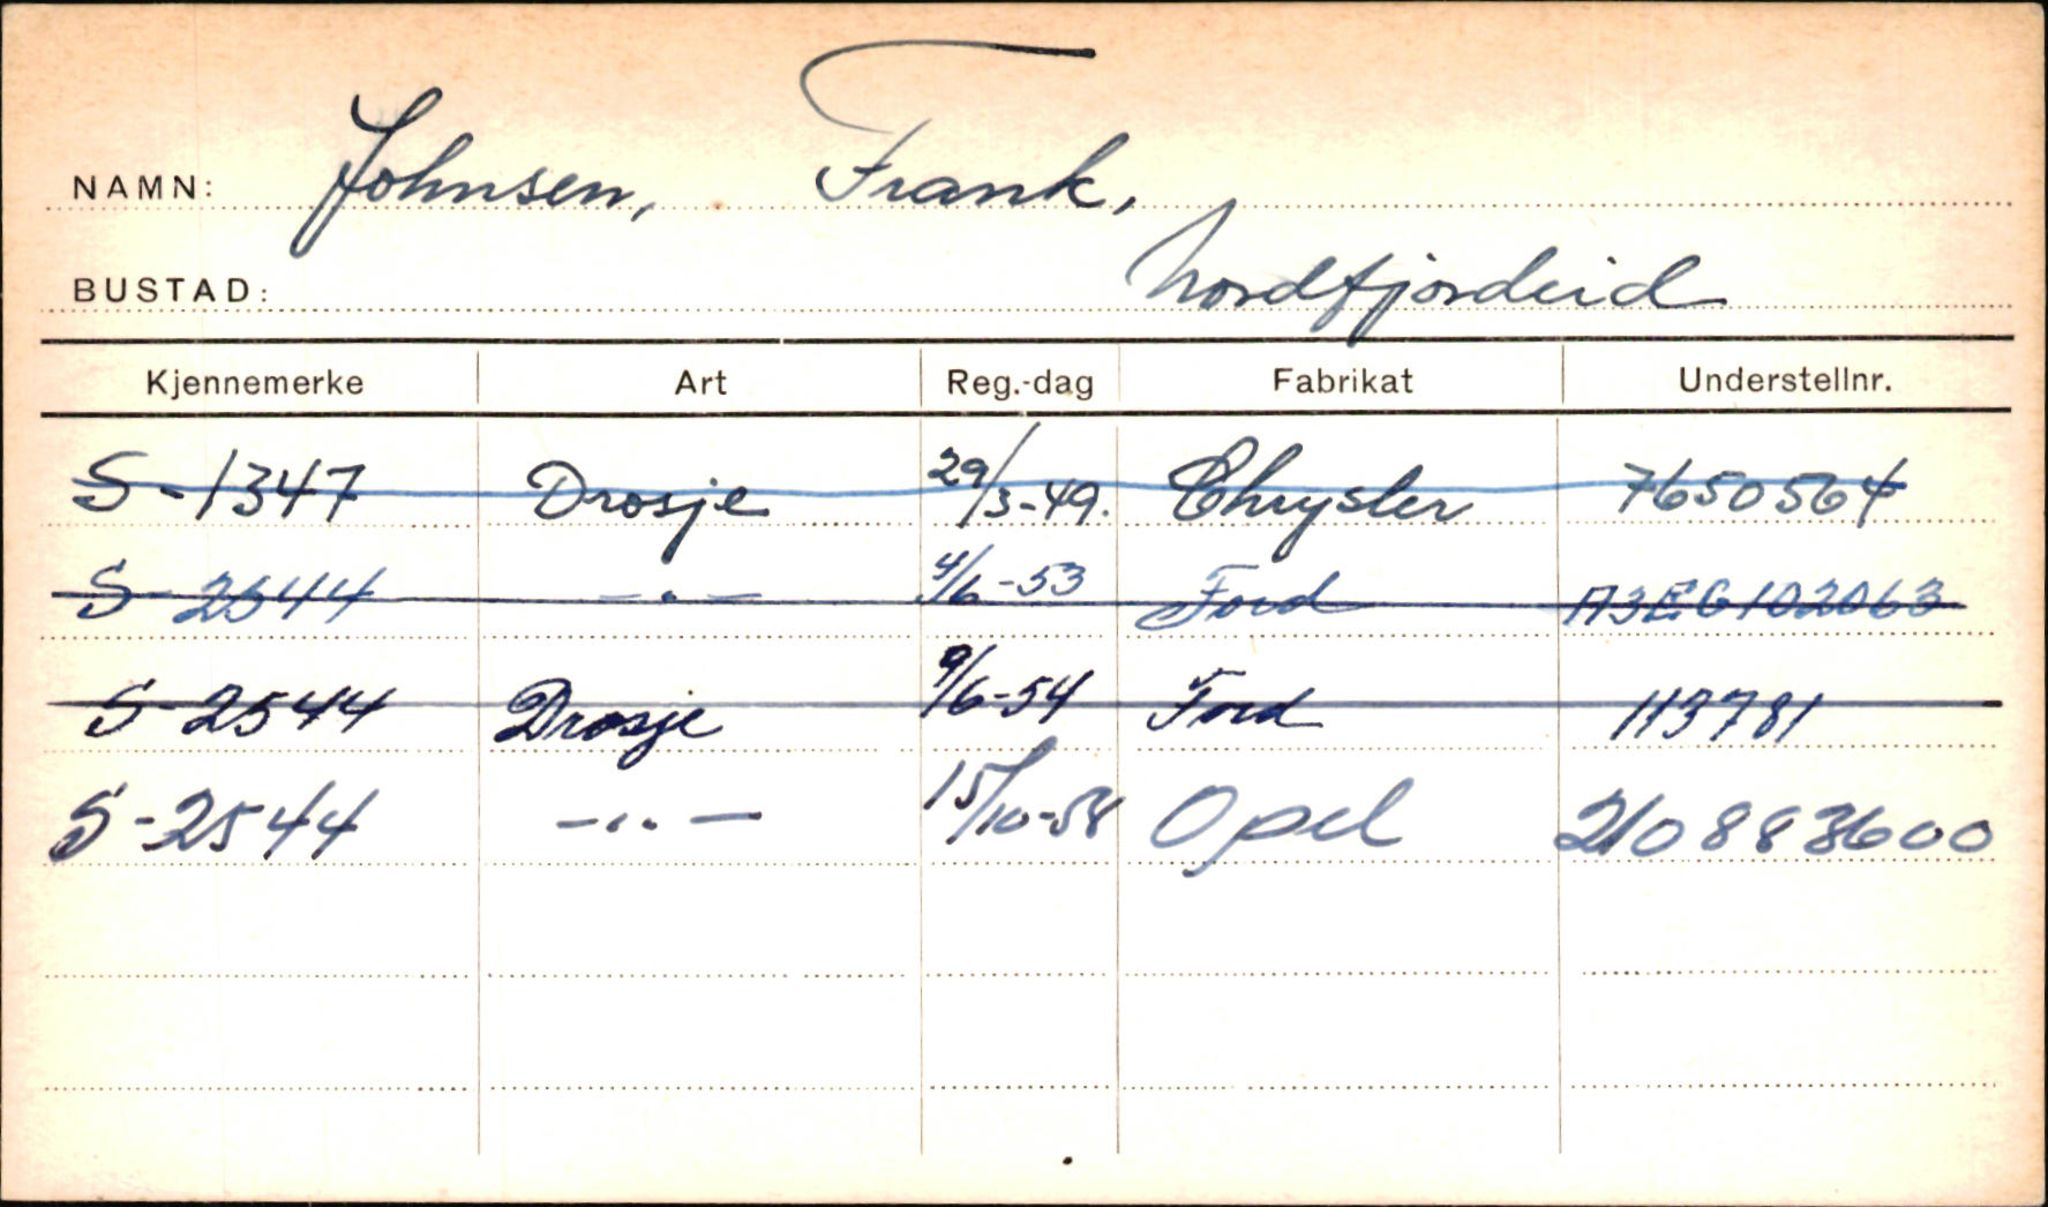 NAMN: Johnsen, Frank,
BUSTAD: Nordfjordeid
Kjennemerke Art Reg.-dag Fabrikat Understellnr.
S-1347 Drosje 29/3-49. Chrysler 7650564
S-2544 -"- 4/6-53 Ford A3EG102063
S-2544 Drosje 9/6-54 Ford 113781
S-2544 -"- 15/10-58 Opel 210883600